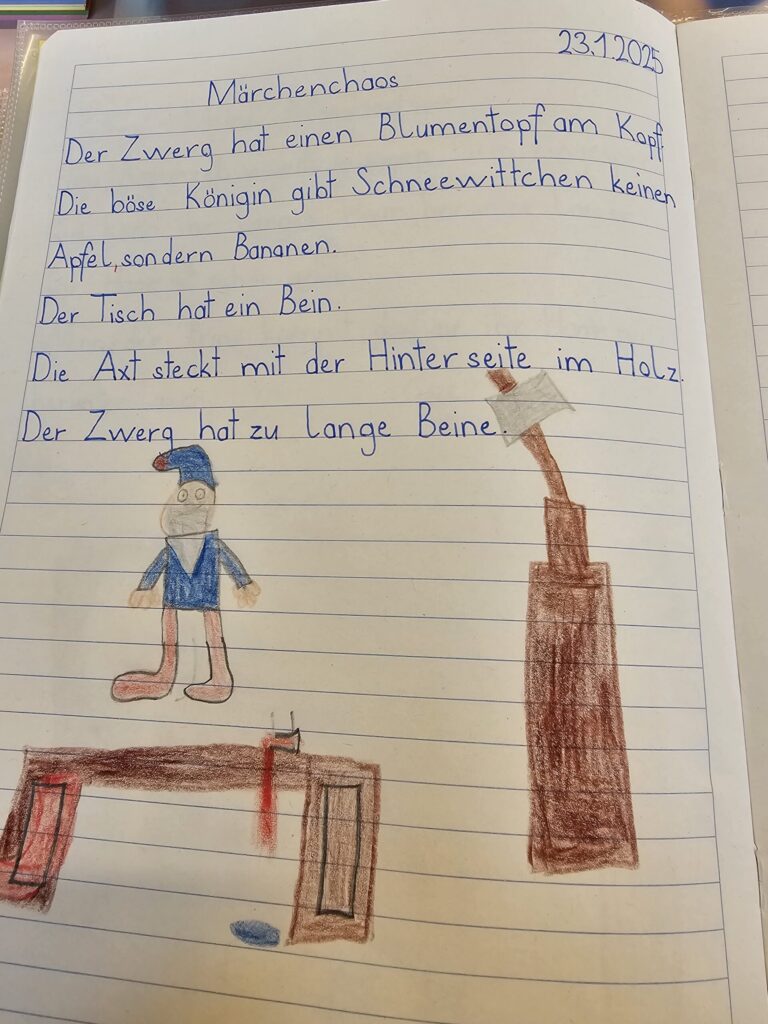 23.1.2025
Märchenchaos
Der Zwerg hat einen Blumentopf am Kopf.
Die böse Königin gibt Schneewittchen keinen
Apfel, sondern Bananen.
Der Tisch hat ein Bein.
Die Axt steckt mit der Hinterseite im Holz.
Der Zwerg hat zu lange Beine.